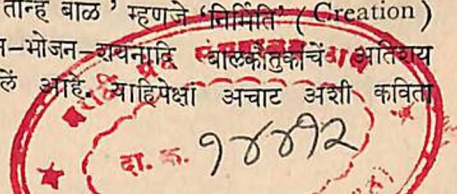 तान्ह बाळ ' म्हणजे ‘निर्मिति’ ( Creation )
–भोजन–शयनादि बालकौतुकाचें अतिशय
लें आहे. याहिपेक्षां अचाट अशी कविता
दा. क्र. १४४१२